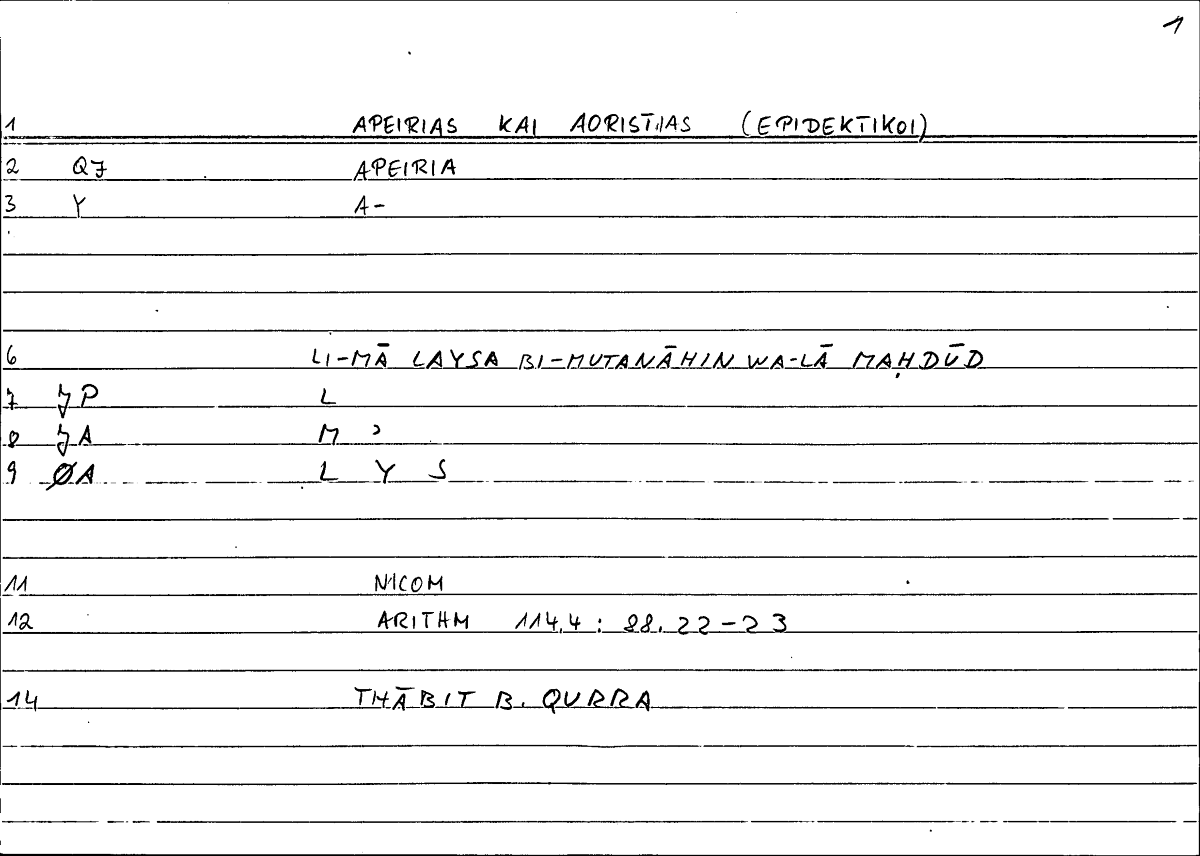 1
1 APEIRIAS KAI AORISTIAS (EPIDEKTIKOI)
2 QJ APEIRIA
3 Y A-
6 LI-MĀ LAYSA BI-MUTANĀHIN WA-LĀ MAḤDŪD
7 JP L
8 JA M ʾ
9 ØA L Y S
11 NICOM
12 ARITHM 114.4 : 88.22-23
14 THĀBIT B. QURRA